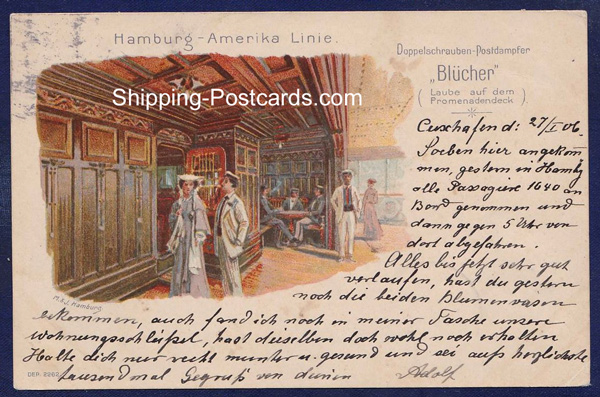 Hamburg-Amerika Linie.
Doppelschrauben-Postdampfer
„Blücher"
(Laube auf dem
Promenadendeck).
Shipping-Postcards.com
Cuxhafen d: 27/I 06.
Soeben hier angekom
men, gestern in Hambg
alle Passagiere 1640 an
Bord genommen und
dann gegen 5 Uhr von
dort abgefahren.
Alles bis jetzt sehr gut
verlaufen, hast du gestern
noch die beiden Blumenvasen
bekommen, auch fand ich noch in meiner Tasche unsere
Wohnungsschlüßel, hast dieselben doch wohl noch erhalten
Halte dich nur recht munter u. gesund und sei aufs herzlichste
tausendmal Gegruß von deinen
Adolf
M&J. Hamburg.
DEP. 2262